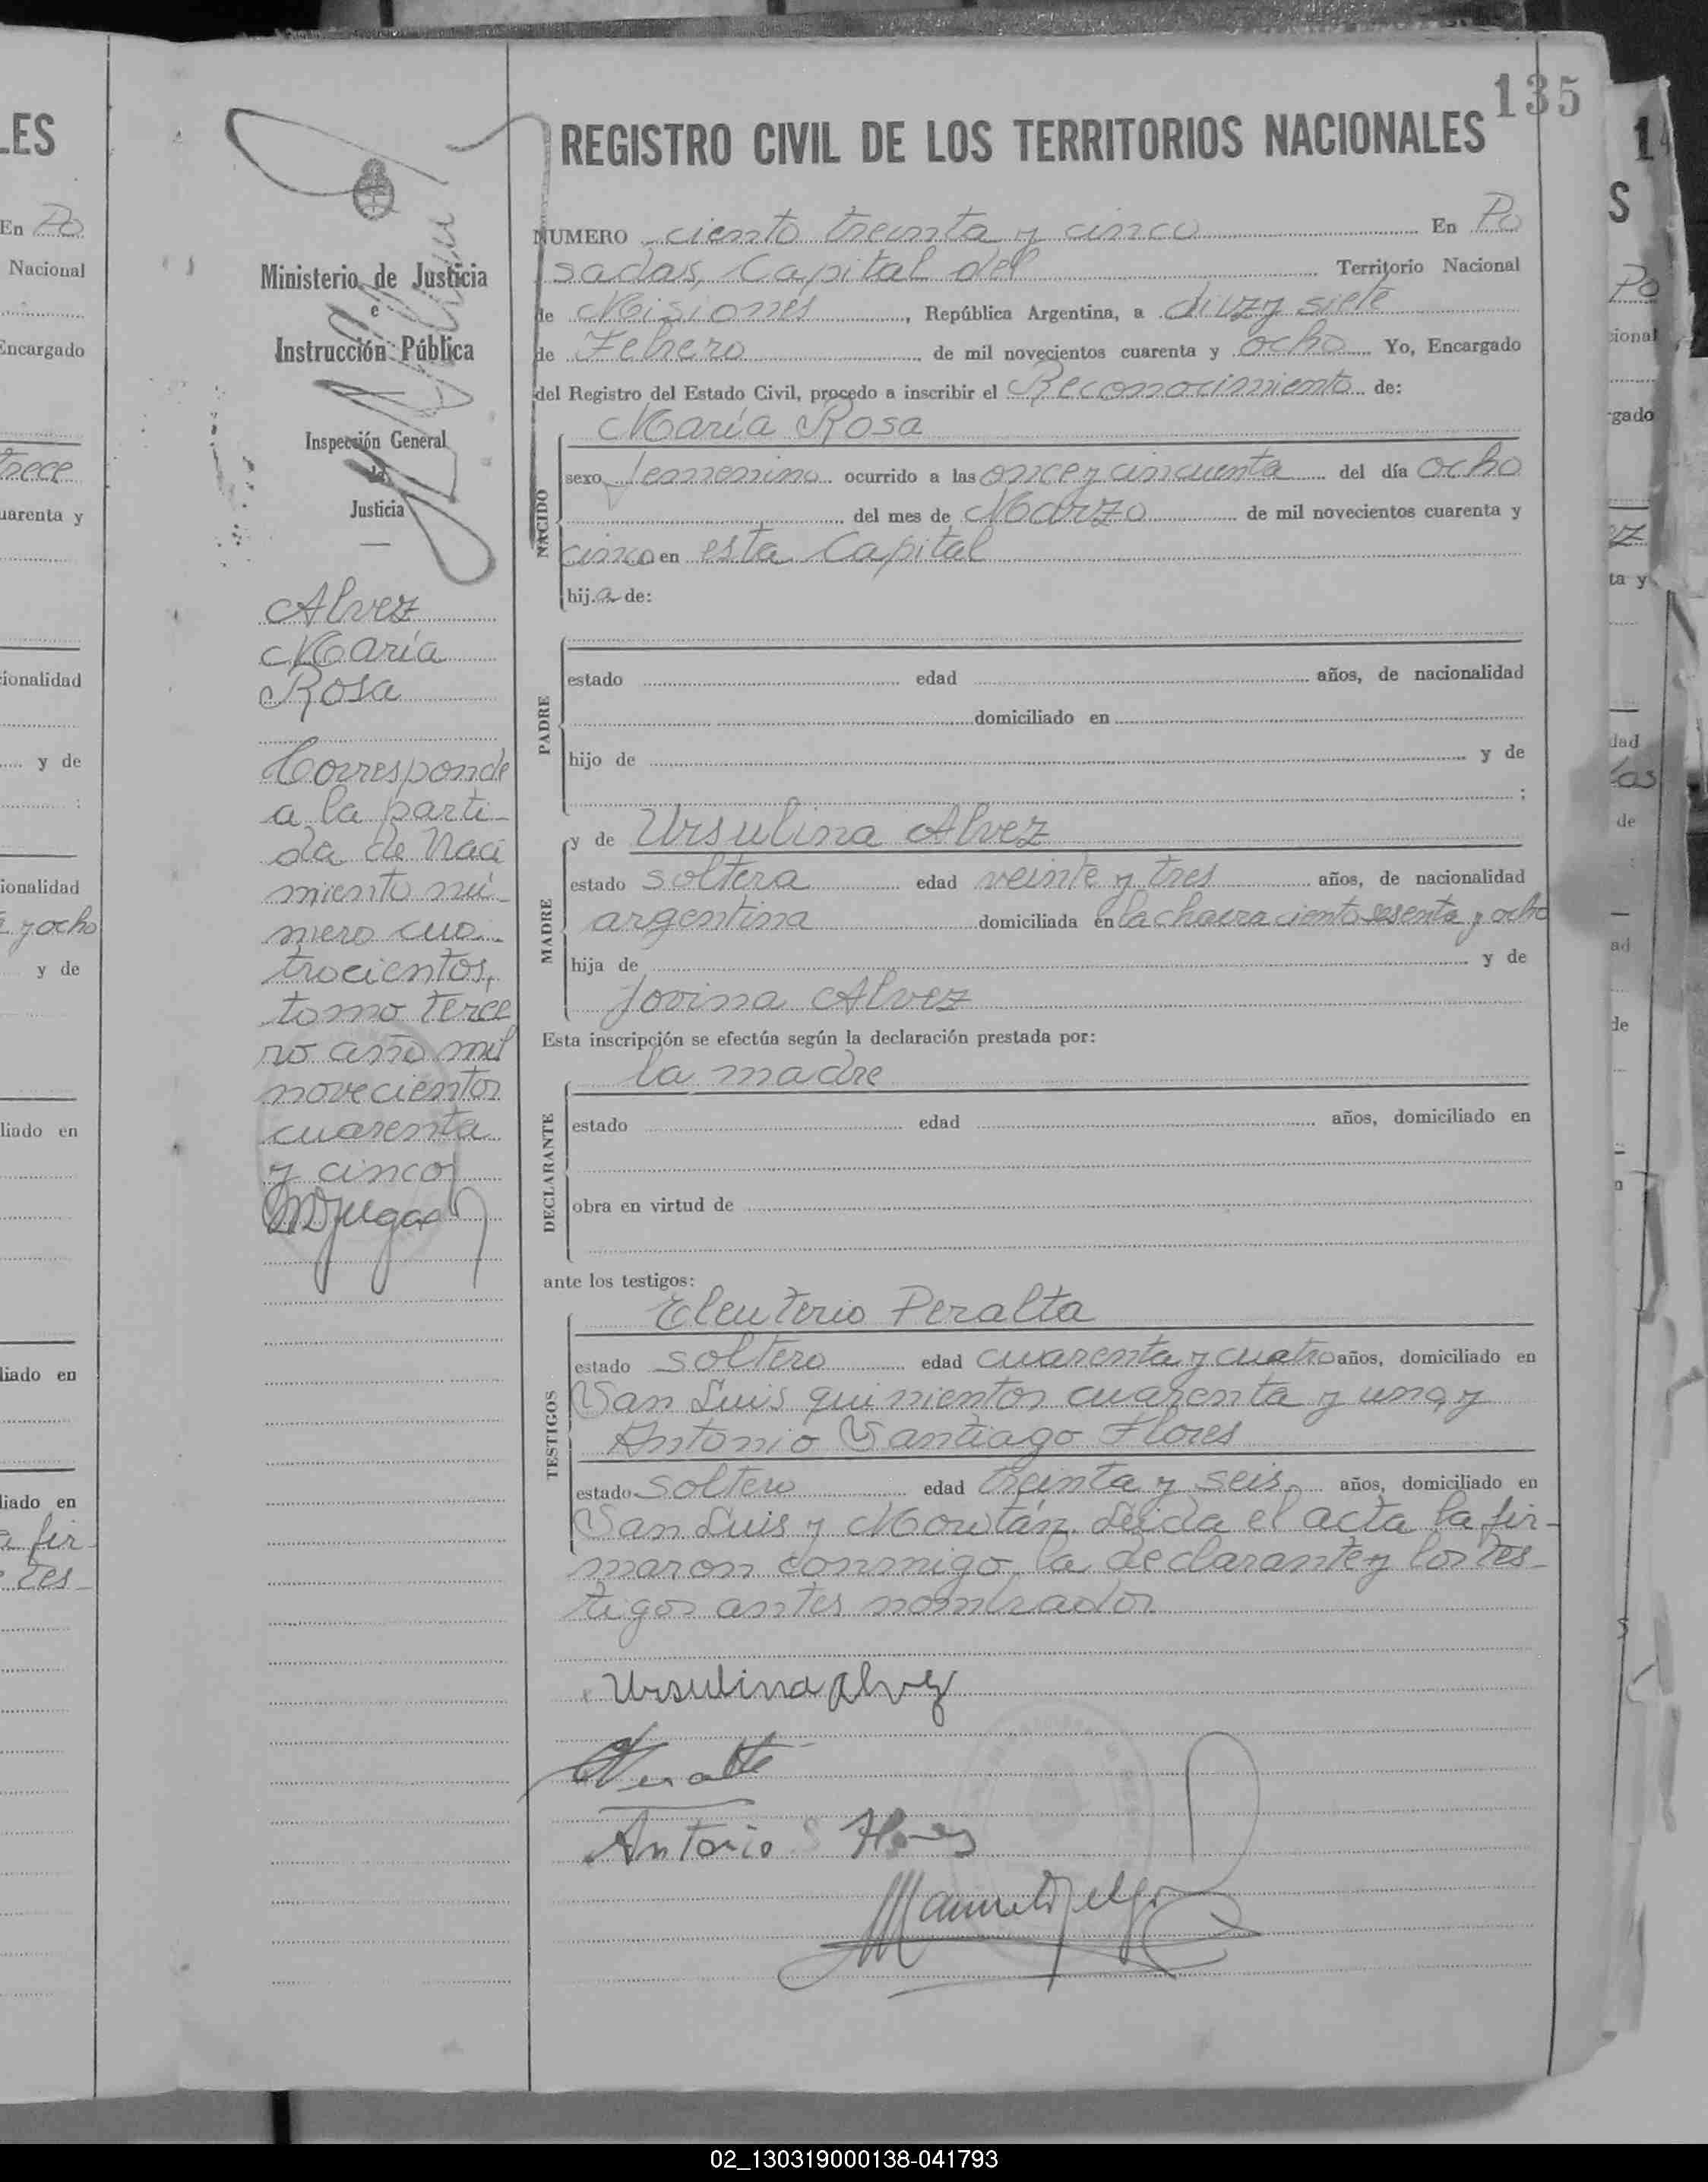 135
REGISTRO CIVIL DE LOS TERRITORIOS NACIONALES
NUMERO ciento treinta y cinco En Po
sadas, Capital del Territorio Nacional
de Misiones, República Argentina, a diez y siete
de Febrero de mil novecientos cuarenta y ocho Yo, Encargado
del Registro del Estado Civil, procedo a inscribir el Reconocimiento de:
NACIDO
María Rosa
sexo femenino ocurrido a las once y cincuenta del día ocho
del mes de Marzo de mil novecientos cuarenta y
cinco en esta Capital
hija de:
PADRE
estado edad años, de nacionalidad
domiciliado en
hijo de y de
;
MADRE
y de Ursulina Alvez
estado soltera edad veinte y tres años, de nacionalidad
argentina domiciliada en la chacra ciento sesenta y ocho
hija de y de
Jovina Alvez
Esta inscripción se efectúa según la declaración prestada por:
DECLARANTE
la madre
estado edad años, domiciliado en
obra en virtud de
ante los testigos:
TESTIGOS
Eleuterio Peralta
estado soltero edad cuarenta y cuatro años, domiciliado en
San Luis quinientos cuarenta y uno, y
Antonio Santiago Flores
estado soltero edad treinta y seis años, domiciliado en
San Luis y Leida el acta la fir-
maron conmigo la declarante y los tes-
tigos antes nombrados
Ursulina Alvez
Antonio S Flores
Ministerio de Justicia
e
Instrucción Pública
Inspección General
de
Justicia
Alvez
María
Rosa
Corresponde
a la parti-
da de Naci
miento nú-
mero cua-
trocientos,
tomo terce
ro año mil
novecientos
cuarenta
y cinco
LES
En Po
Nacional
Encargado
trece
uarenta y
ionalidad
y de
;
ionalidad
y ocho
y de
liado en
liado en
liado en
fir-
tes-
S
Po
ional
gado
ta y
dad
los
de
ad
de
02_130319000138-041793